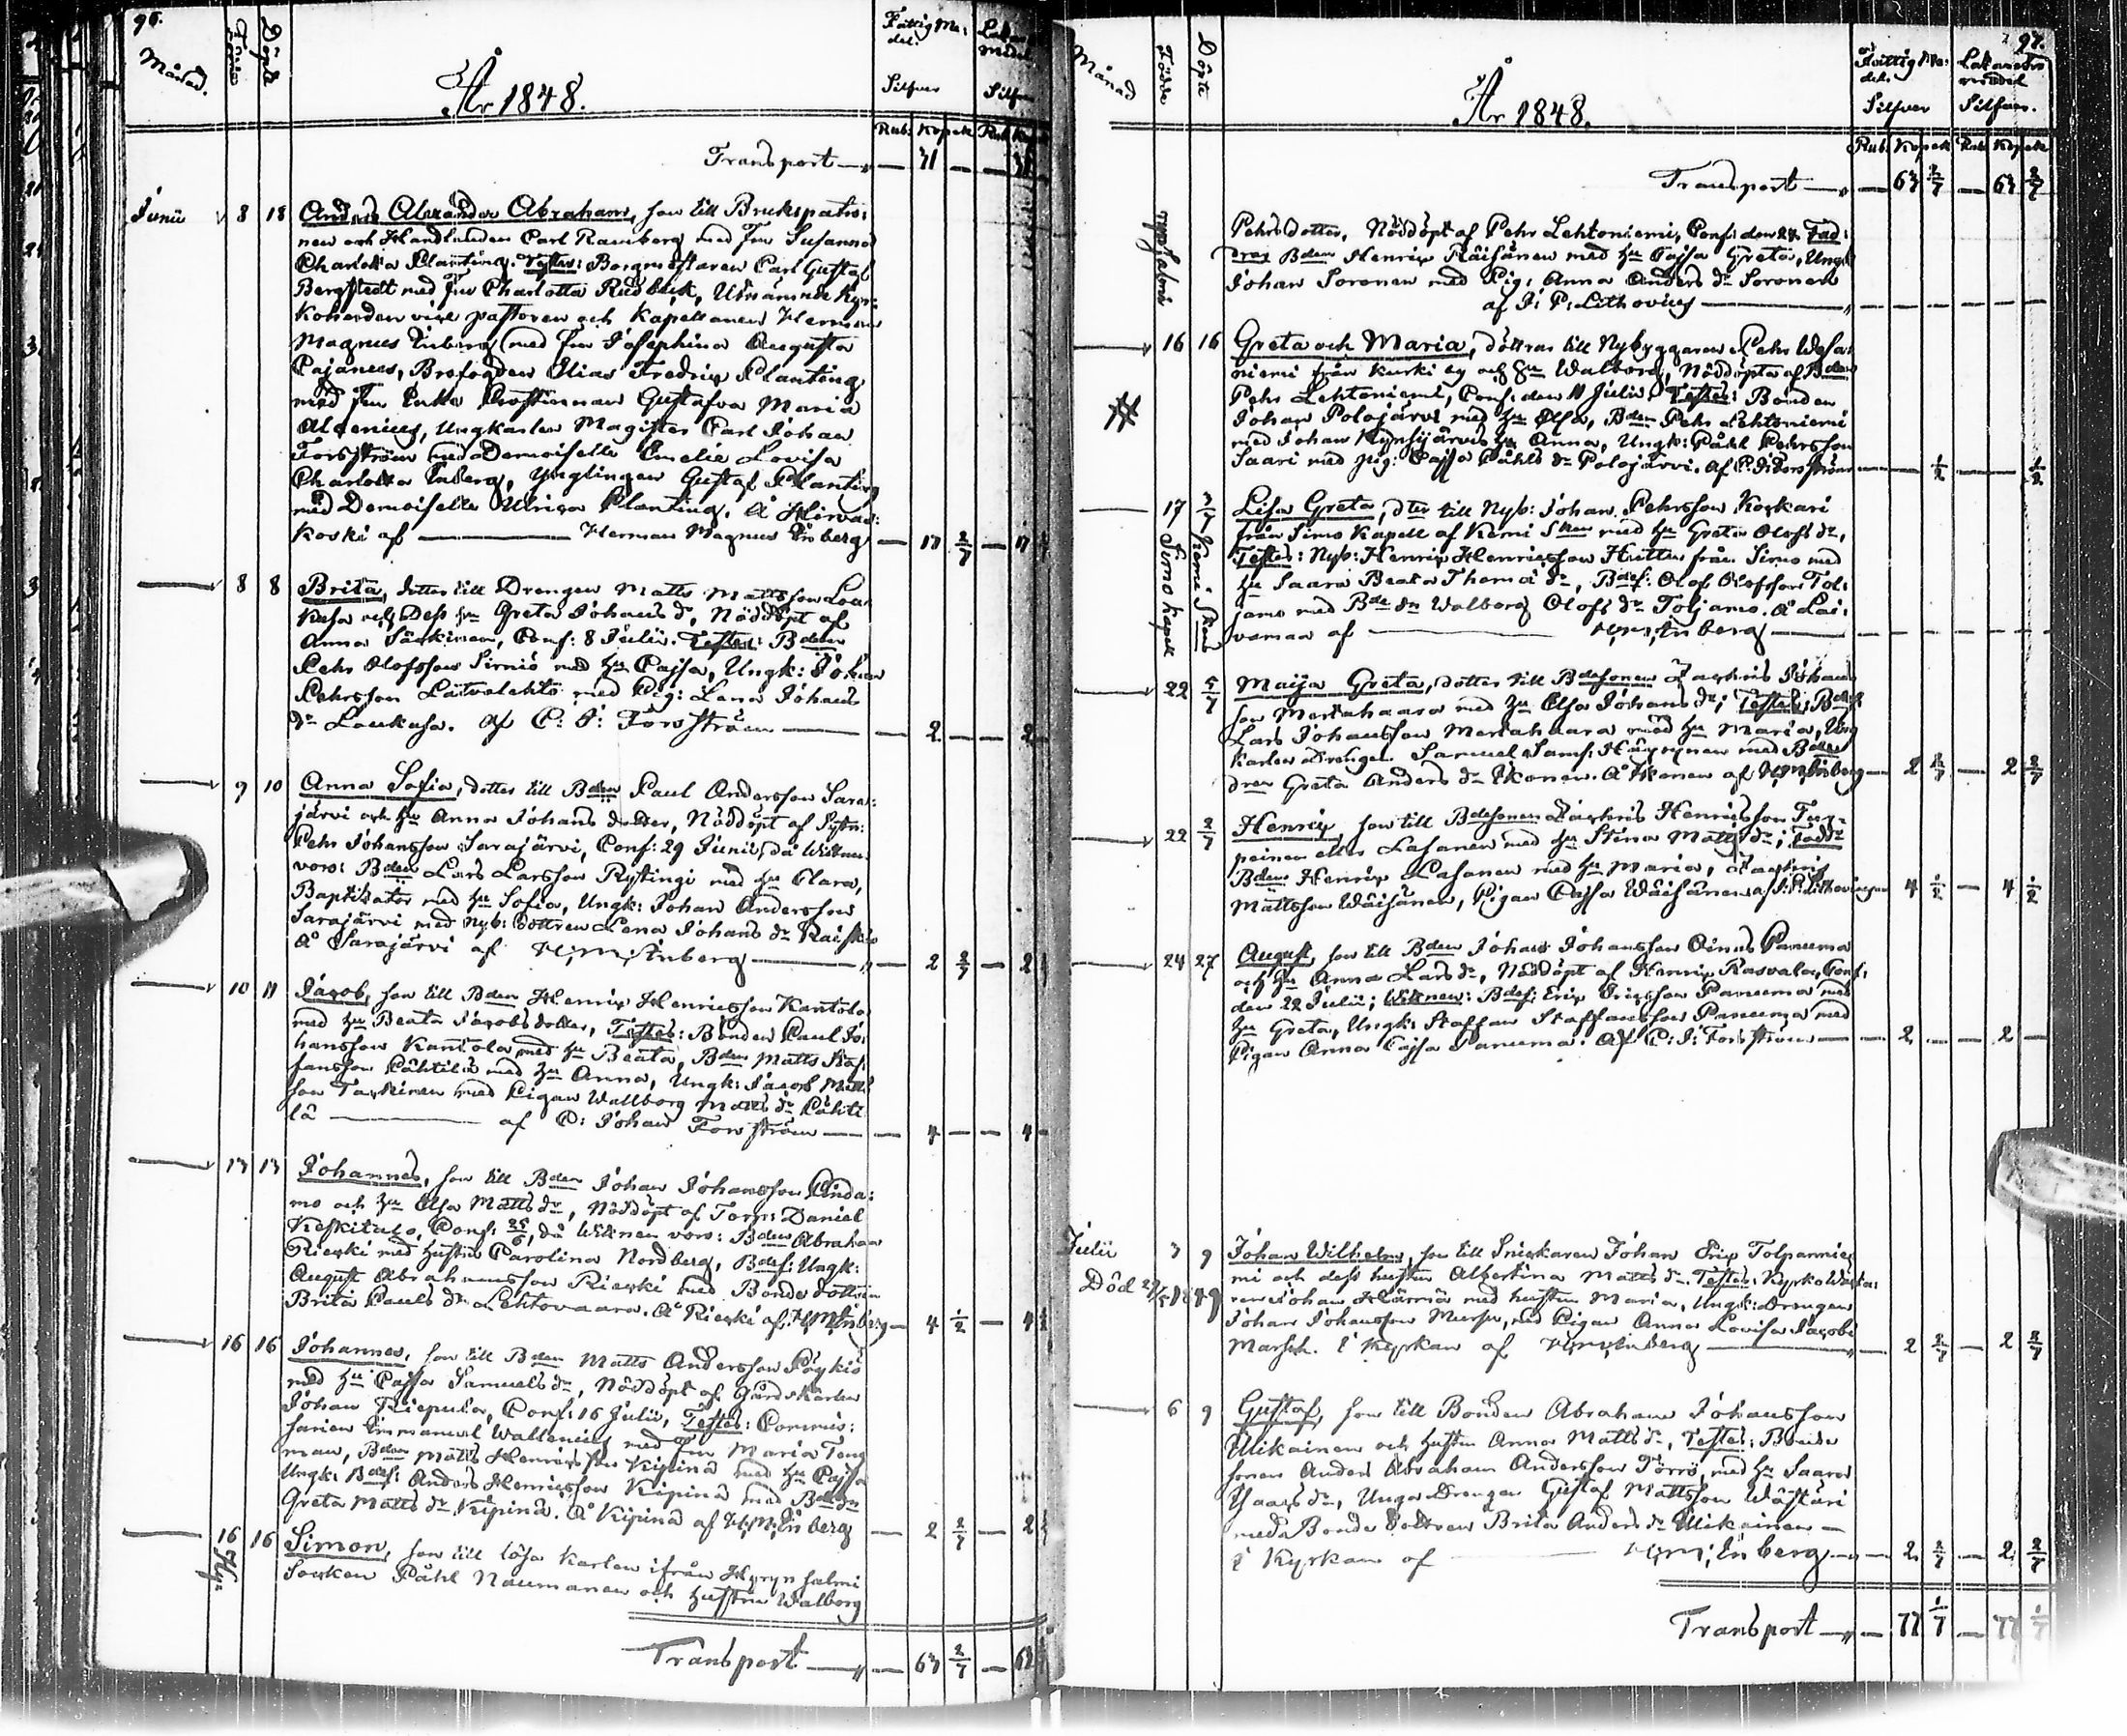 96.
Månad.
Födde
Döpte
År 1848.
Fattig Me:
del.
Silfver
Rub. Kopek
Transport — 31 —
Junii 8 18 Anders Alexander Abraham, son till Brukspatro:
nen och Handlanden Carl Ramberg med Fru Susanna
Charlotta Planting. Testes: Borgmästaren Carl Gustaf
Bergstedt med Fru Charlotta Rudbeck, Utnämnde Kyr:
koherden vice pastoren och Kapellanen Herman
Magnus Enberg med Fru Josephina Augusta
Cajanus, Brofogden Elias Fredrix Planting
med Fru Enka Prostinnan Gustafva Maria
Alcenius, Ungkarlen Magister Carl Johan
Forsström med Demoiselle Emelie Lovisa
Charlotta Enberg, Ynglingen Gustaf Planting
med Demoiselle Ulrica Planting. Å Hirvas:
koski af — Herman Magnus Enberg — 17 2/7 — 17
8 8 Brita, dotter till Drengen Matts Mattsson Lou
kusa och Dess hu Greta Johans dr, Nöddöpt af
Anna Särkinen, Conf: 8 Julii. Testes: Bden
Pehr Olofsson Sirniö med hu Cajsa, Ungk: Johan
Pehrsson Lätvälehtö med Pig: Lena Johans
dr Loukusa. Af C: J: Forsström — 2 — 2
9 10 Anna Sofia, dotter till Bden Paul Andersson Sara:
järvi och hu Anna Johans dotter, Nöddöpt af Sytn:
Pehr Johansson Sarajärvi, Conf: 29 Junii, då Wittnen
voro: Bden Lars Larsson Rytingi med hu Clara,
Baptisator med hu Sofia, Ungk: Johan Andersson
Sarajärvi med Nyb: dottren Lena Johans dr Raiskio
Å Sarajärvi af H: M: Enberg — 2 2/7 — 2
10 11 Jacob, son till Bden Henrix Henricsson Kantola
med hu Beata Jacobs dotter, Testes: Bonden Paul Jo:
hansson Kantola med hu Beata, Bden Matts Staf:
fansson Pähtilä med hu Anna, Ungk: Jacob Matts
son Tarkinen med Pigan Wallborg Matts dr Pähti
lä — af C: Johan Forsström — 4 — 4
13 13 Johannes, son till Bden Johan Johansson Pinda:
mo och hu Elsa Matts dr, Nöddöpt af Torp: Daniel
Keskitalo, Conf: 25/6, då Wittnen voro: Bden Abraham
Riecki med hustru Carolina Nordberg, Bdes: Ungk:
August Abrahamsson Riecki med Bonde dottren
Brita Pauls dr Lehtovaara. Å Riecki af H: M: Enberg — 4 1/2 — 4
16 16 Johannes, son till Bden Matts Andersson Pöykiö
med hu Cajsa Samuels dr, Nöddöpt af Gårdskarlen
Johan Riepula, Conf: 16 Julii, Testes: Commis:
sarien Immanuel Wallenius med Fru Maria Teng
man, Bden Matts Henricsson Kipinä med hu Cajsa
Ungk: Bdes: Anders Henricsson Kipinä med Bdes dr
Greta Matts dr Kipinä. Å Kipinä af H: M: Enberg — 2 2/7 — 2
16 16 Simon, son till lösa karlen ifrån Hyrynsalmi
Socken Påhl Naumanen och hustru Walborg
Transport — 63 2/7 — 63
97.
Månad
Födde
Döpte
År 1848.
Fattig Me:
del.
Silfver
Silfver.
Rub. Kopek Rub Kopek
Transport — 63 2/7 — 63 2/7
Pehrsdotter, Nöddöpt af Pehr Lehtoniemi, Conf: den 24. Fad:
drar Bden Henrix Räisänen med hu Cajsa Greta, Ungk
Johan Soronen med Pig: Anna Anders dr Soronen
af J: P: Lithovius —
16 16 Greta och Maria, döttrar till Nybyggaren Pehr Wesa:
niemi från Kurki by och hu Walborg, Nöddöpta af Bden
Pehr Lehtoniemi, Conf: den 11 Julii. Testes: Bonden
Johan Polojärvi med hu Elsa, Bden Pehr Lehtoniemi
med Johan Kynsijärvis hu Anna, Ungk: Påhl Pehrsson
Saari med pig: Cajsa Påhls dr Polojärvi. Af C: J: Forsström — 1/2 — 1/2
17 3/7 Lisa Greta, dter till Nyb: Johan Pehrsson Korkari
från Simo Kapell af Kemi Sken med hu Greta Olofs dr,
Testes: Nyb: Henrix Henricsson Huitten från Simo med
hu Saara Beata Thoma dr, Bdes: Olof Olofsson Tol:
jamo med Bde dr Walborg Olofs dr Toljamo. Å Lai:
vamaa af — H: M: Enberg —
Simo Kapell
Kemi Sken
22 5/7 Maija Greta, dotter till Bdesonen Zachris Johans
son Mertahaara med hu Elsa Johans dr; Testes: Bdes
Lars Johansson Mertahaara med hu Maria, Ung
karlen Drengen Samuel Sams: Häyrynen med Bdes
dren Greta Anders dr Ikonen. Å Ikonen af H: M: Enberg — 2 2/7 — 2 2/7
22 2/7 Henrix, son till Bdesonen Zachris Henricsson Tur:
peinen eller Lasanen med hu Stina Matts dr; Faddr
Bden Henrix Lasanen med hu Maria, Zachris
Mattsson Wäisänen, Pigan Cajsa Wäisänen af J: P: Lithovius — 4 1/2 — 4 1/2
24 27 August, son till Bden Johan Johansson Oinas Panuma
och hu Anna Lars dr, Nöddöpt af Henrix Kasvala, Conf:
den 22 Julii; Wittnen: Bdes: Erix Ericsson Panuma med
hu Greta, Ungk: Staffan Staffansson Panuma med
Pigan Anna Cajsa Panuma. Af C: J: Forsström — 2 — 2
Julii 3 9 Johan Wilhelm, son till Snickaren Johan Erix Tolpannie
mi och dess hustru Albertina Matts dr. Testes: Kyrko Wäkta:
ren Johan Härmä med hustru Maria, Ungk: Drengen
Johan Johansson Mursu, med Pigan Anna Lovisa Jacobs
Marsch. I Kyrkan af H: M: Enberg — 2 2/7 — 2 2/7
Död 29/5 1849
6 9 Gustaf, son till Bonden Abraham Johansson
Uikainen och hustru Anna Matts dr, Testes: Bonde
sonen Anders Abraham Andersson Törrö, med hu Saara
Isaacs dr, Unga Drengen Gustaf Mattsson Wästäri
med Bonde dottren Brita Anders dr Uikainen —
i Kyrkan af — H: M: Enberg — 2 2/7 — 2 2/7
Transport — 77 1/7 — 77 1/7